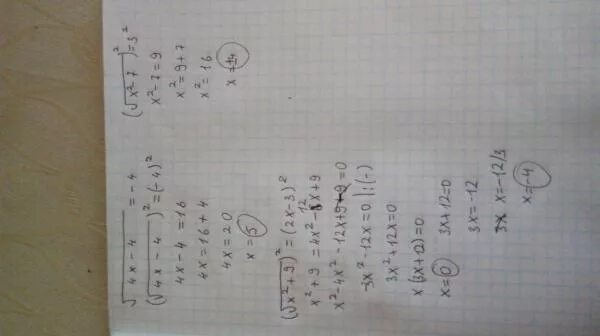 √4x-4 = -4
(√4x-4)² = (-4)²
4x-4=16
4x=16+4
4x=20
x=5
(√x²+9)² = (2x-3)²
x²+9 = 4x²-12x+9
x²-4x²-12x+9-9=0
-3x²-12x=0 |:(-)
3x²+12x=0
x(3x+12)=0
x=0 3x+12=0
3x=-12
x=-12/3
x=-4
(√x²-7)²=3²
x²-7=9
x²=9+7
x²=16
x=±4